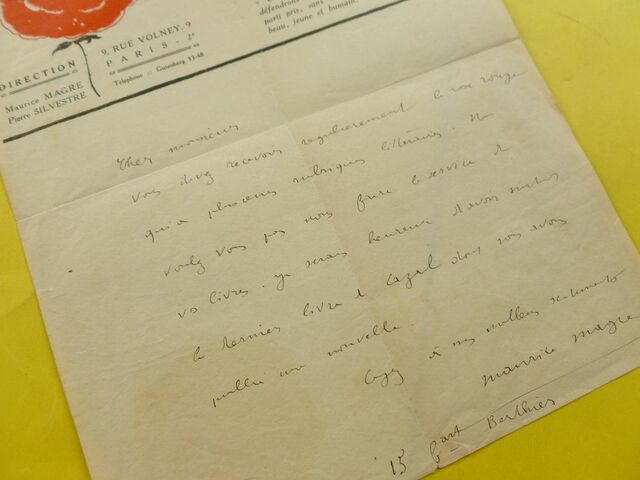 défendrons
parti pris, sans
beau, jeune et humain.
DIRECTION
Maurice MAGRE
Pierre SILVESTRE
9, RUE VOLNEY, 9
PARIS - 2e
Téléphone : Gutenberg 53-48
Cher monsieur
vous devez recevoir regulierement la rose rouge
qui a plusieurs rubriques littéraires. Ne
voulez vous pas nous faire le service de
vos livres. Je serais heureux d'avoir surtout
le dernier livre de Cazal dont vous avez
publié une nouvelle.
Croyez à mes meilleurs sentiments
maurice magre
15 bart Berthier